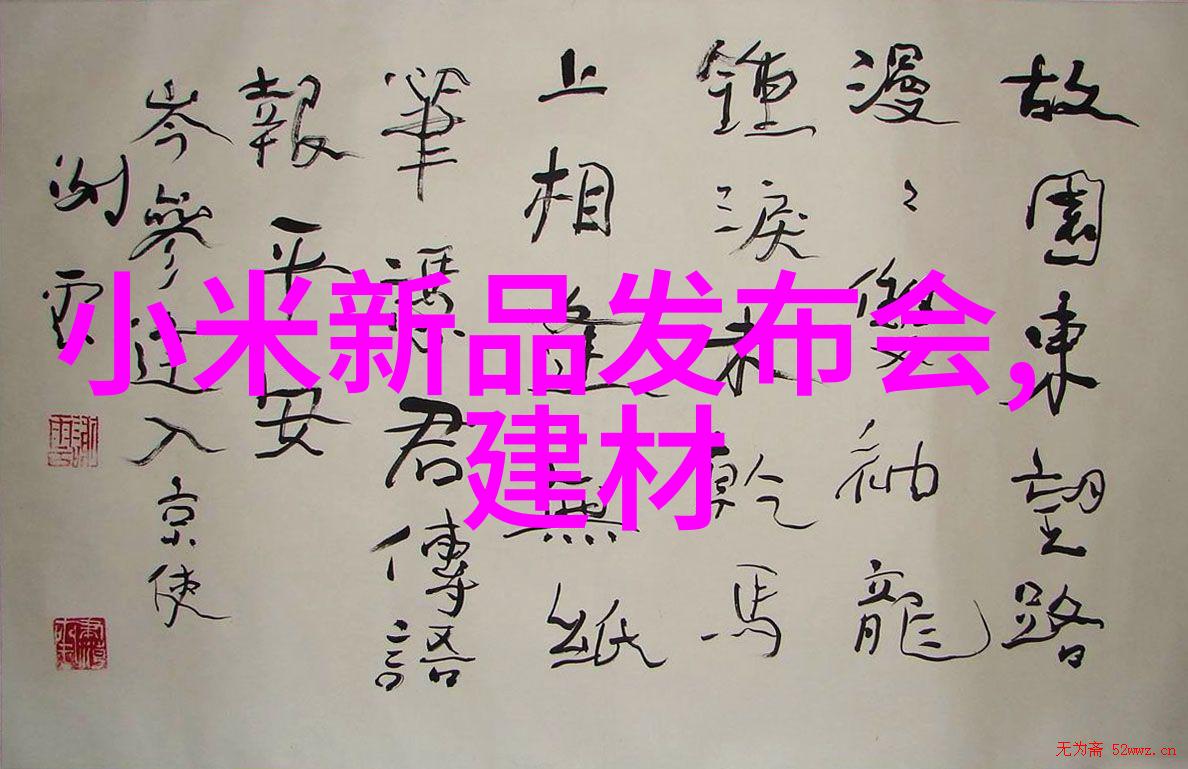 故園東望路
漫々雙袖龍
鍾淚未乾馬
上相逢無紙
筆憑君傳語
報平安
岑參逢入京使
雲
小米新品发布会,
建材
无为斋 52wwz.cn